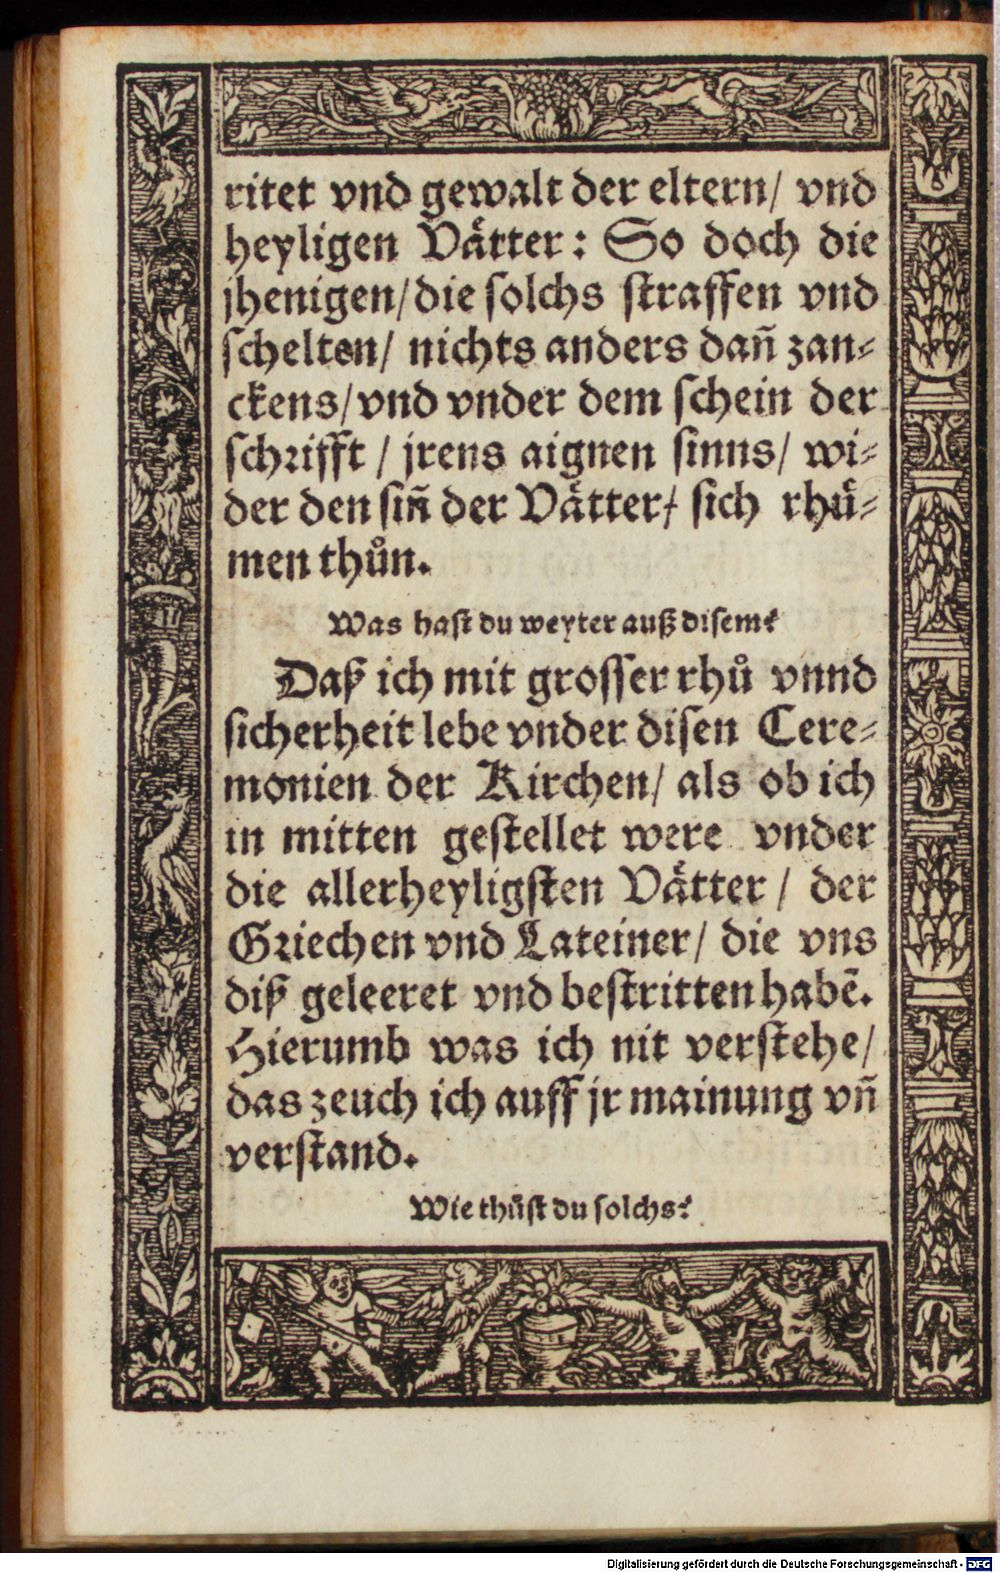 ritet vnd gewalt der eltern/ vnd
heyligen Vaͤtter: So doch die
jhenigen/die solchs straffen vnd
schelten/ nichts anders dañ zan⸗
ckens/vnd vnder dem schein der
schrifft / jrens aignen sinns/ wi⸗
der den siñ der Vaͤtter/ sich rhuͤ⸗
men thuͦn.
Was hast du weyter auß disem?
Daß ich mit grosser rhuͦ vnnd
sicherheit lebe vnder disen Cere⸗
monien der Kirchen/ als ob ich
in mitten gestellet were vnder
die allerheyligsten Vaͤtter / der
Griechen vnd Lateiner/ die vns
diß geleeret vnd bestritten habẽ.
Hierumb was ich nit verstehe/
das zeuch ich auff jr mainung vñ
verstand.
Wie thuͦst du solchs?
Digitalisierung gefördert durch die Deutsche Forschungsgemeinschaft - DFG